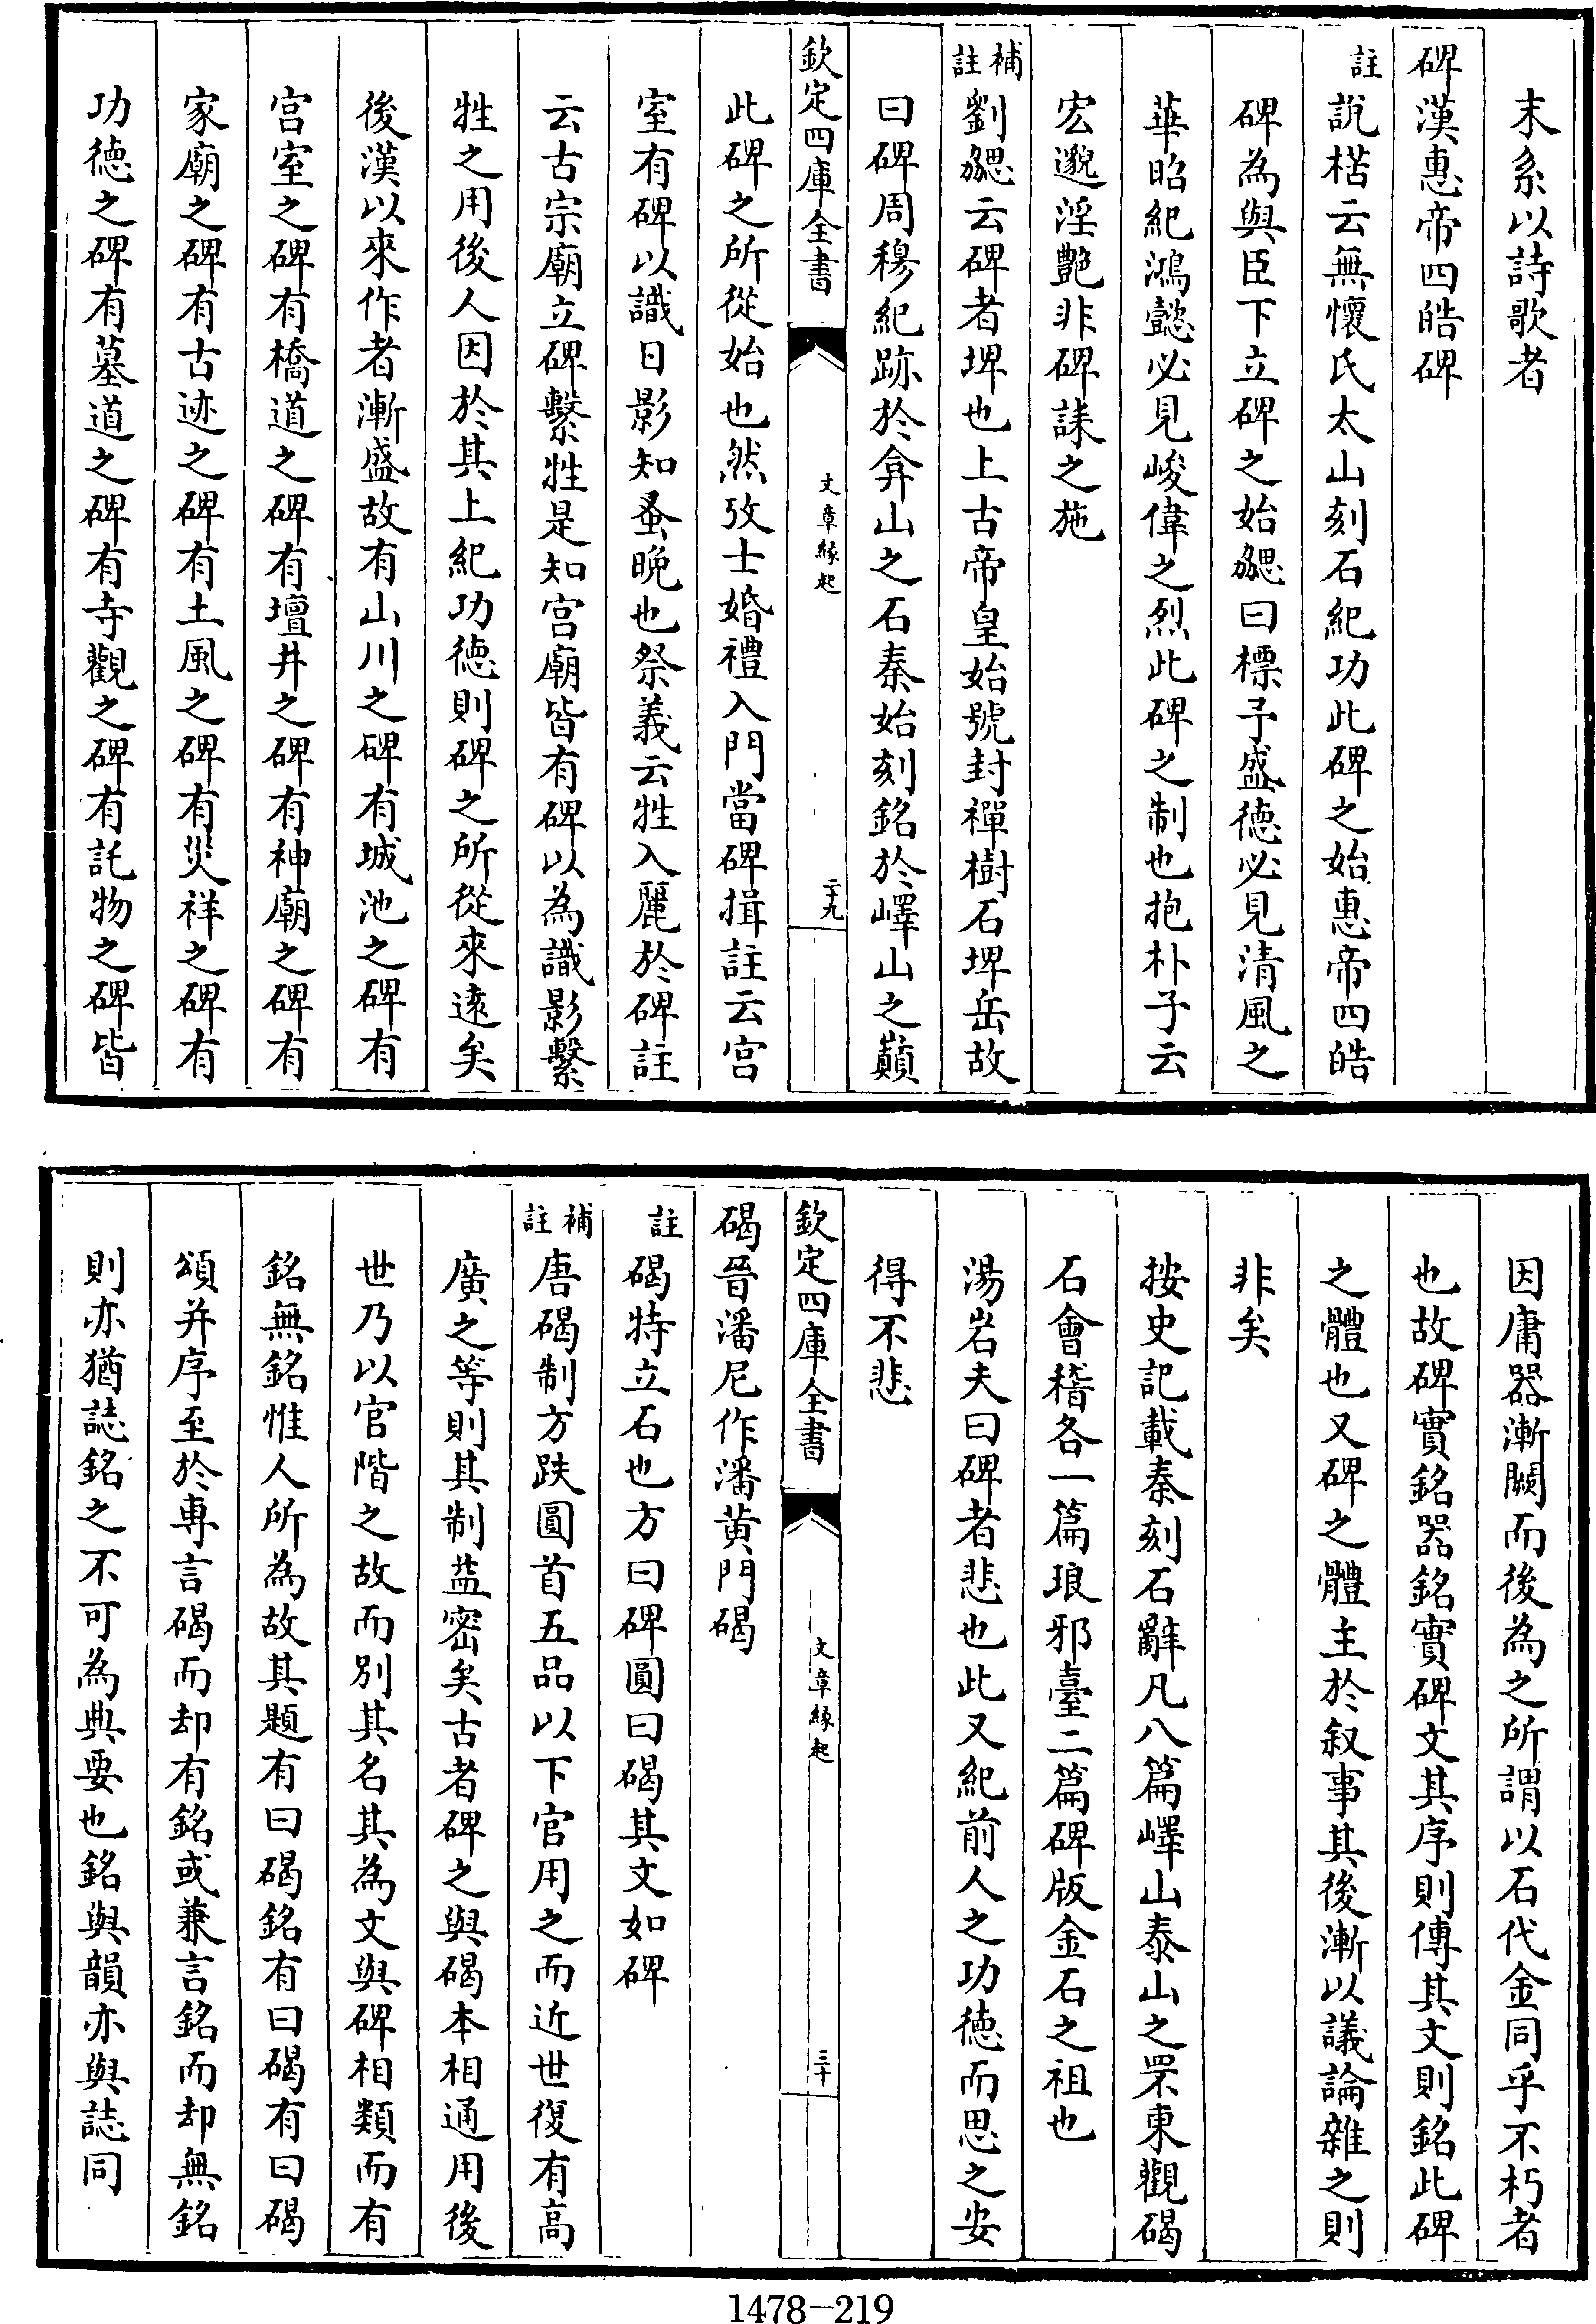 末系以詩歌者
碑漢惠帝四皓碑
註說楛云無懷氏太山刻石紀功此碑之始惠帝四皓
碑為與臣下立碑之始勰曰標予盛德必見清風之
華昭紀鴻懿必見峻偉之烈此碑之制也抱朴子云
宏邈淫艷非碑誄之施
補註劉勰云碑者埤也上古帝皇始號封禪樹石埤岳故
曰碑周穆紀跡於弇山之石秦始刻銘於嶧山之巔
欽定四庫全書 文章緣起 二十九
此碑之所從始也然攷士婚禮入門當碑揖註云宫
室有碑以識日影知蚤晚也祭義云牲入麗於碑註
云古宗廟立碑繫牲是知宫廟皆有碑以為識影繫
牲之用後人因於其上紀功德則碑之所從來遠矣
後漢以來作者漸盛故有山川之碑有城池之碑有
宫室之碑有橋道之碑有壇井之碑有神廟之碑有
家廟之碑有古迹之碑有土風之碑有災祥之碑有
功德之碑有墓道之碑有寺觀之碑有託物之碑皆
因庸器漸闕而後為之所謂以石代金同乎不朽者
也故碑實銘器銘實碑文其序則傳其文則銘此碑
之體也又碑之體主於叙事其後漸以議論雜之則
非矣
按史記載秦刻石辭凡八篇嶧山泰山之罘東觀碣
石會稽各一篇琅邪臺二篇碑版金石之祖也
湯岩夫曰碑者悲也此又紀前人之功德而思之安
得不悲
欽定四庫全書 文章緣起 三十
碣晉潘尼作潘黄門碣
註碣特立石也方曰碑圓曰碣其文如碑
補註唐碣制方趺圓首五品以下官用之而近世復有高
廣之等則其制益密矣古者碑之與碣本相通用後
世乃以官階之故而別其名其為文與碑相類而有
銘無銘惟人所為故其題有曰碣銘有曰碣有曰碣
頌并序至於專言碣而却有銘或兼言銘而却無銘
則亦猶誌銘之不可為典要也銘與韻亦與誌同
1478-219